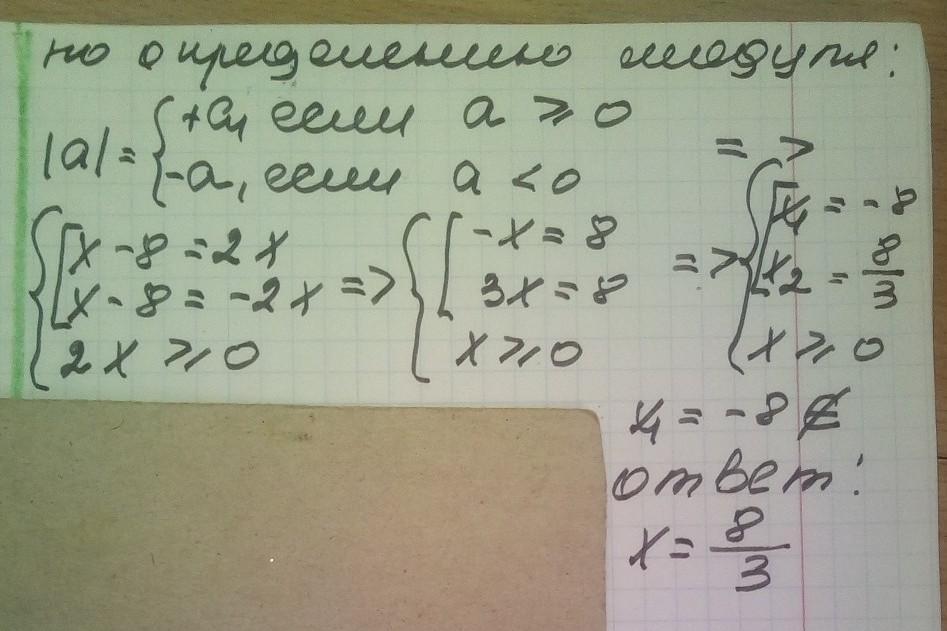 по определению модуля:
|a| = { +a, если a ⩾ 0
-a, если a < 0
=>
{ [ x - 8 = 2x
x - 8 = -2x
2x ⩾ 0
=> { [ -x = 8
3x = 8
x ⩾ 0
=> { [ x₁ = -8
x₂ = 8/3
x ⩾ 0
x₁ = -8 ∉
ответ:
x = 8/3